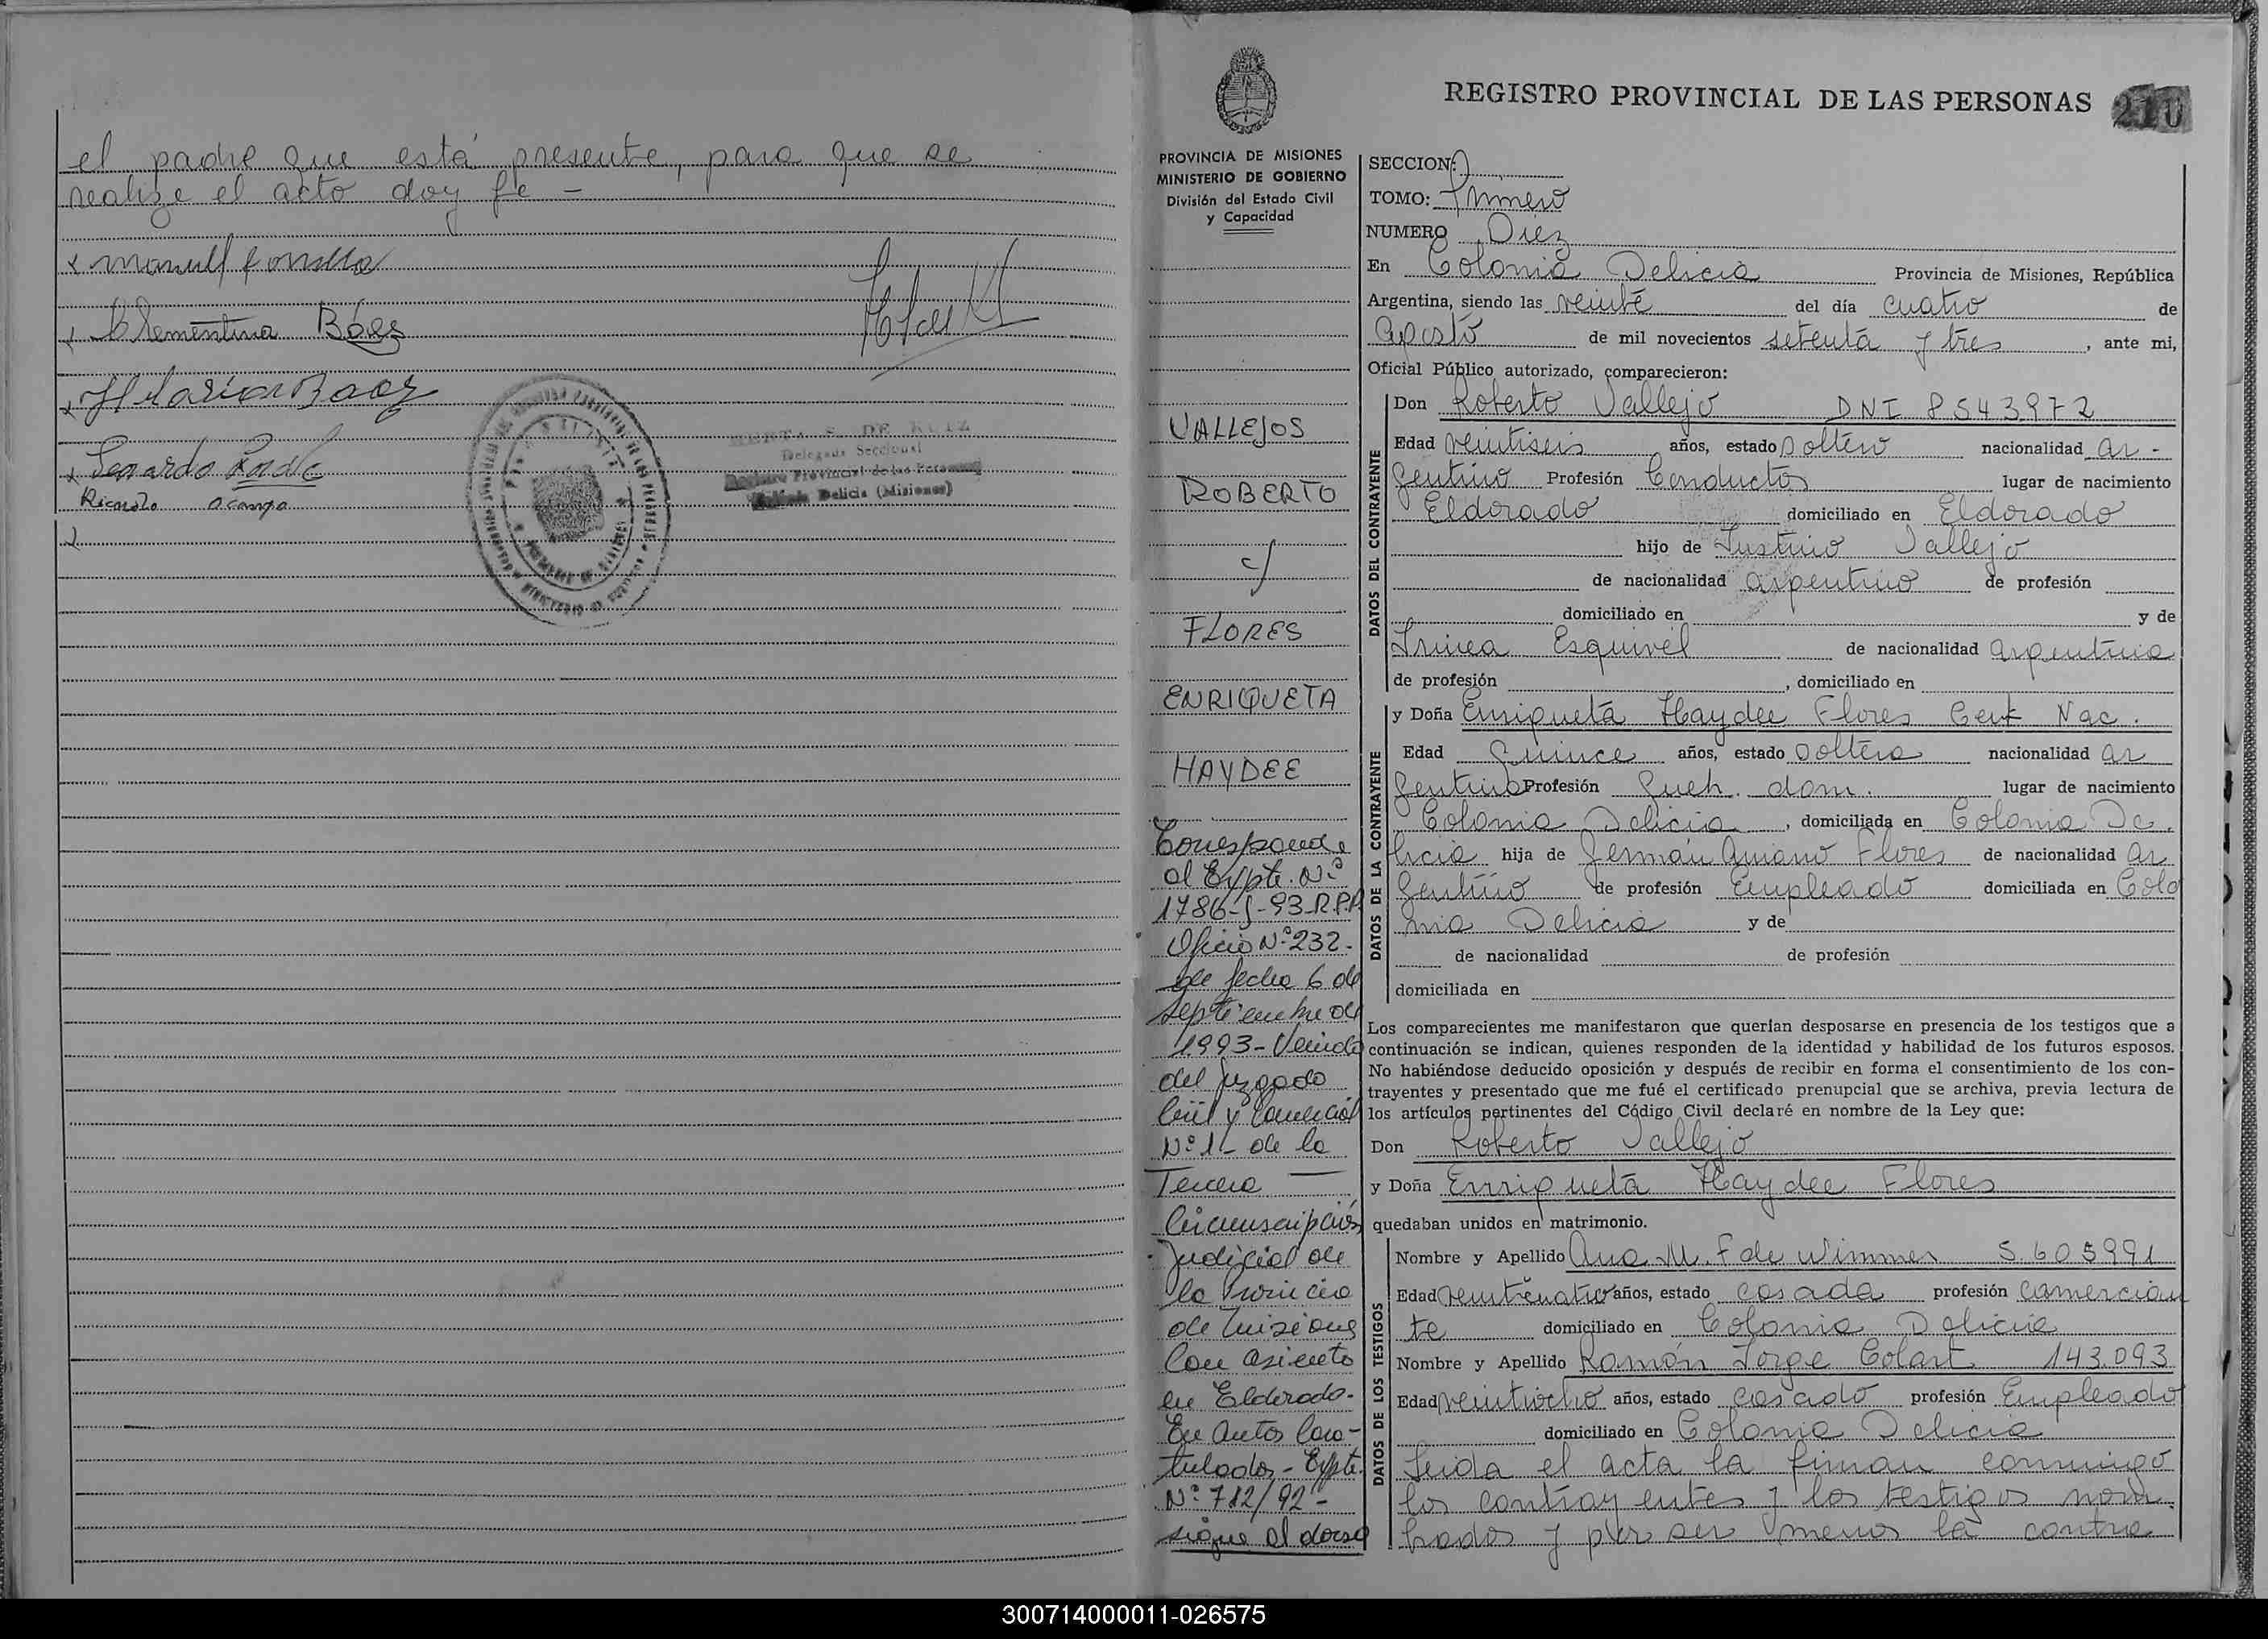 el padre que está presente, para que se
realize el acto doy fe -
x manuel fonseca
x Clementina Báes
x Hilaria Baez
x Leonardo
Ricardo Ocampo
x
BERTA S. DE RUIZ
Delegada Seccional
Registro Provincial de las Personas
Colonia Delicia (Misiones)
REGISTRO PROVINCIAL DE LAS PERSONAS 210
PROVINCIA DE MISIONES
MINISTERIO DE GOBIERNO
División del Estado Civil
y Capacidad
VALLEJOS
ROBERTO
c/
FLORES
ENRIQUETA
HAYDEE
Corresponde
al Expte. Nº
1786-J-93-R.P.P.
Oficio Nº 232-
de fecha 6 de
septiembre de
1993- Venido
del juzgado
Civil y Comercial
Nº 1- de la
Tercera
Circunscripción
Judicial de
la Provincia
de Misiones
Con asiento
en Eldorado.
En Autos Cara-
tulados - Expte.
Nº 712/92-
sigue al dorso
SECCION:
TOMO: Primero
NUMERO Diez
En Colonia Delicia Provincia de Misiones, República
Argentina, siendo las veinte del día cuatro de
agosto de mil novecientos setenta y tres, ante mi,
Oficial Público autorizado, comparecieron:
DATOS DEL CONTRAYENTE
Don Roberto Vallejo DNI 8543972
Edad veintiseis años, estado soltero nacionalidad ar-
gentino Profesión Conductor lugar de nacimiento
Eldorado domiciliado en Eldorado
hijo de Justino Vallejo
de nacionalidad argentino de profesión
domiciliado en y de
Irinea Esquivel de nacionalidad argentina
de profesión , domiciliado en
DATOS DE LA CONTRAYENTE
y Doña Enriqueta Haydee Flores Cert Nac.
Edad Quince años, estado soltera nacionalidad ar
gentina Profesión Queh. dom. lugar de nacimiento
Colonia Delicia, domiciliada en Colonia De
licia hija de Germán Amano Flores de nacionalidad ar
gentino de profesión Empleado domiciliada en Colo
nia Delicia y de
de nacionalidad de profesión
domiciliada en
Los comparecientes me manifestaron que querían desposarse en presencia de los testigos que a
continuación se indican, quienes responden de la identidad y habilidad de los futuros esposos.
No habiéndose deducido oposición y después de recibir en forma el consentimiento de los con-
trayentes y presentado que me fué el certificado prenupcial que se archiva, previa lectura de
los artículos pertinentes del Código Civil declaré en nombre de la Ley que:
Don Roberto Vallejo
y Doña Enriqueta Haydee Flores
quedaban unidos en matrimonio.
DATOS DE LOS TESTIGOS
Nombre y Apellido Ana M. F de Wimmer 5.605991
Edad veinticuatro años, estado casada profesión comercian
te domiciliado en Colonia Delicia
Nombre y Apellido Ramón Jorge Colart 143.093
Edad veintiocho años, estado casado profesión Empleado
domiciliado en Colonia Delicia
Leida el acta la firman conmigo
los contrayentes y los testigos nom
brados y por ser menor la contra
300714000011-026575